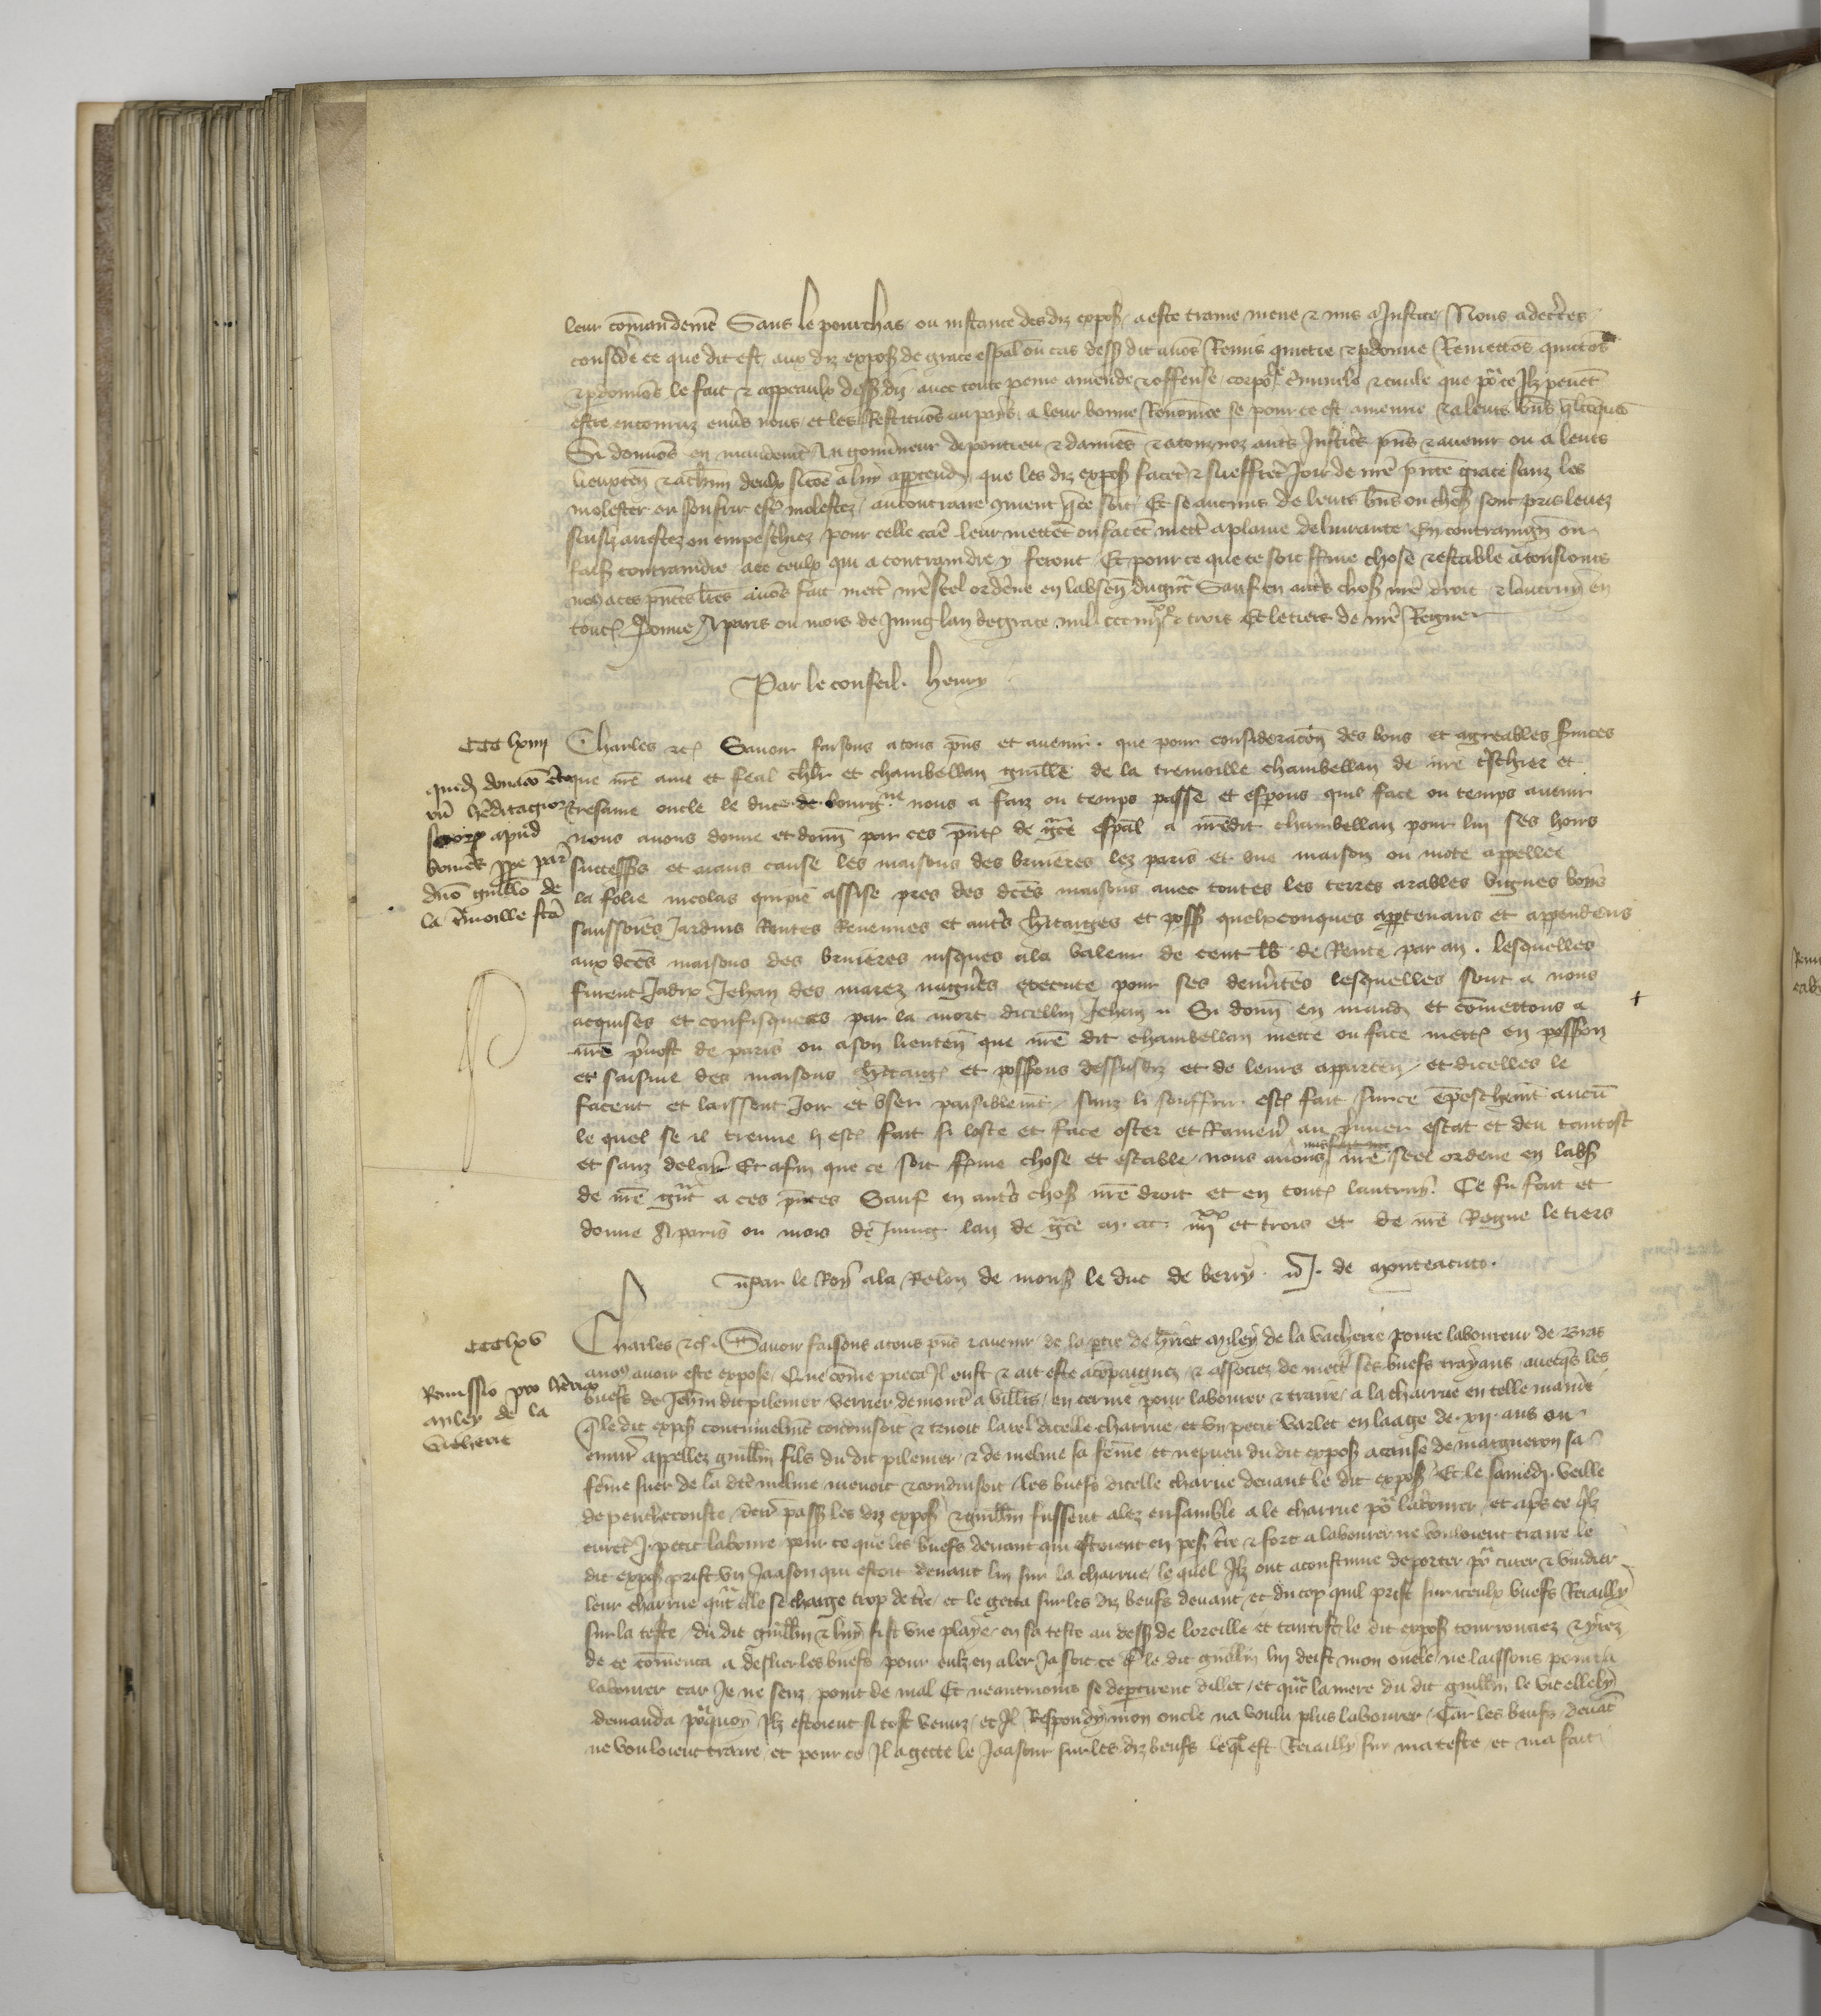 leur comandemt Sans le pourchas ou instance des diz expos a este traine mene & mis a Justice Nous adecertes
consider ce que dit est aux diz expos de grace espal ou cas dess dit avons Remis quictie & pdonne Remettons quictons
& pdonnons le fait & appeaulx dess diz avec toute peine amende & offense corporele criminele & civile que por ce Ilz pevent
estre encouruz envers nous et les Restituons au pays a leur bonne Renommee se pour ce est amenrie & a leurs biens
Si donnons en mandemt Au gouverneur de pontieu & damiens & a touz noz autres Justic pns & avenir ou a leurs
lieuxten & a chun deulx si come a luy appartendra que les diz expos facent & sueffrent Joir de nre pnte grace sanz les
molester ou souffrir estre molestez au contraire coment que ce soit Et se aucuns de leurs biens ou choses sont pris levez
saisiz arrestez ou empeschiez pour celle cause leur mettent ou facent mettre a plaine delivrance En contraingn ou
fais contraindre a ce ceulx qui a contraindre y seront Et pour ce que ce soit ferme chose & estable a tousiours
nous a ces pntes lres avons fait mettre nre seel ordene en labsence du grant Sauf en autres choses nre droit & lautruy en
toutes Donne A paris ou mois de Juing lan de grace mil ccc iiijxx & trois Et le tiers de nre Regne
Par le conseil. Henry
CCClxiiij
quedam donacio certorum hereditagiorum apud per dominum guillmo de la tremoille facta
Charles &c Savoir faisons a tous pns et avenir que pour consideracon des bons et agreables services
que nre ame et feal chlr et chambellan guille de la tremoille chambellan de nre treschier et
tresame oncle le duc de bourgne nous a faiz ou temps passe et esperons quil face ou temps avenir
nous avons donne et donn par ces pntes de grace espal a nredit chambellan pour lui ses hoirs
successrs et aians cause les maisons des bruieres lez paris et une maison ou mote appellee
la folie nicolas assise pres des dces maisons avec toutes les terres arables vignes boys
saussoies Jardins Rentes Revenues et autres heritaiges et poss quelxconques appartenans et appendens
aux dces maisons des bruieres iusques a la valeur de cent lb de Rente par an. lesquelles
furent Jadix Jehan des marez nagueres execute pour ses demerites lesquelles sont a nous
acquises et confisquees par la mort dicellui Jehan Si donn en mand et comettons a
nre prevost de paris ou a son lieuten que nre dit chambellan mette ou face mettre en possion
et saisine des maisons heritaiges et possions dessusdiz et de leurs apparten et dicelles le
facent et laissent Joir et user paisiblemt sanz li souffrir estre fait sur ce empeschemt aucun
le quel se il treuve y estre fait si loste et face oster et Ramener au premier estat et deu tantost
et sanz delay Et afin que ce soit ferme chose et estable nous avons nre seel ordene en labs
de nre grant a ces pntes Sauf en autres choses nre droit et en toutes lautruy. Ce fu fait et
donne A paris ou mois de Juing lan de grace m. ccc iiijxx et trois et de nre Regne le tiers
par le Roy a la Relon de mons le duc de berry. J. de monteacuto.
CCClxv
Remissio pro henrico miley de la vacherie
Charles &c. Savoir faisons a tous pns & avenir de la ptie de henriet miley de la vacherie povre laboureur de bras
a nous avoir este expose Que come pieca Il eust & ait este acompaignez & associez de mettre ses buefs trayans avecques les
buefs de Jehan dit pilemer verrier demourant a en cerine pour labourer & traire a la charrue en telle maniere
que le dit expos continuelment conduisoit & tenoit la tel dicelle charrue et un petit varlet en laage de xij ans ou
environ appellez guillin fils du dit pilemer & de meline sa feme et nepveu du dit expos a cause de margueron sa
feme suer de la dce meline menoit & conduisoit les buefs dicelle charue devant le dit expos Et le samedy veille
de penthecouste derr pass les diz expos & guillin fussent alez ensamble a le charrue por labourer et apres ce quilz
eurent j petit laboure pour ce que les buefs devant qui estoient en pes terre & fort a labourer ne vouloient traire le
dit expos prist un Jaason qui estoit devant lui sur la charrue le quel Ilz ont acoustume de porter por curer & vuidier
leur charrue quant elle se charge trop de terre et le getta sur les diz beufs devant et du cop quil prist sur iceulx buefs Reiailly
sur la teste du dit guillin & luy fist une playe en sa teste au dess de loreille et tantost le dit expos courrouciez & yriez
de ce comenca a deslier les buefs pour eulx en aler Ja soit ce que le dit guillin lui deist mon oncle ne laissons point a
labourer car Je ne senz point de mal Et neantmoins se departirent dillec et quant la mere du dit guillin le vit elle luy
demanda pourquoy Ilz estoient si tost venuz et Il Respondy mon oncle na voulu plus labourer Car les beufs devant
ne vouloient traire et pour ce Il a gette le Jaason sur les diz beufs le quel est Reiailly sur ma teste et ma fait